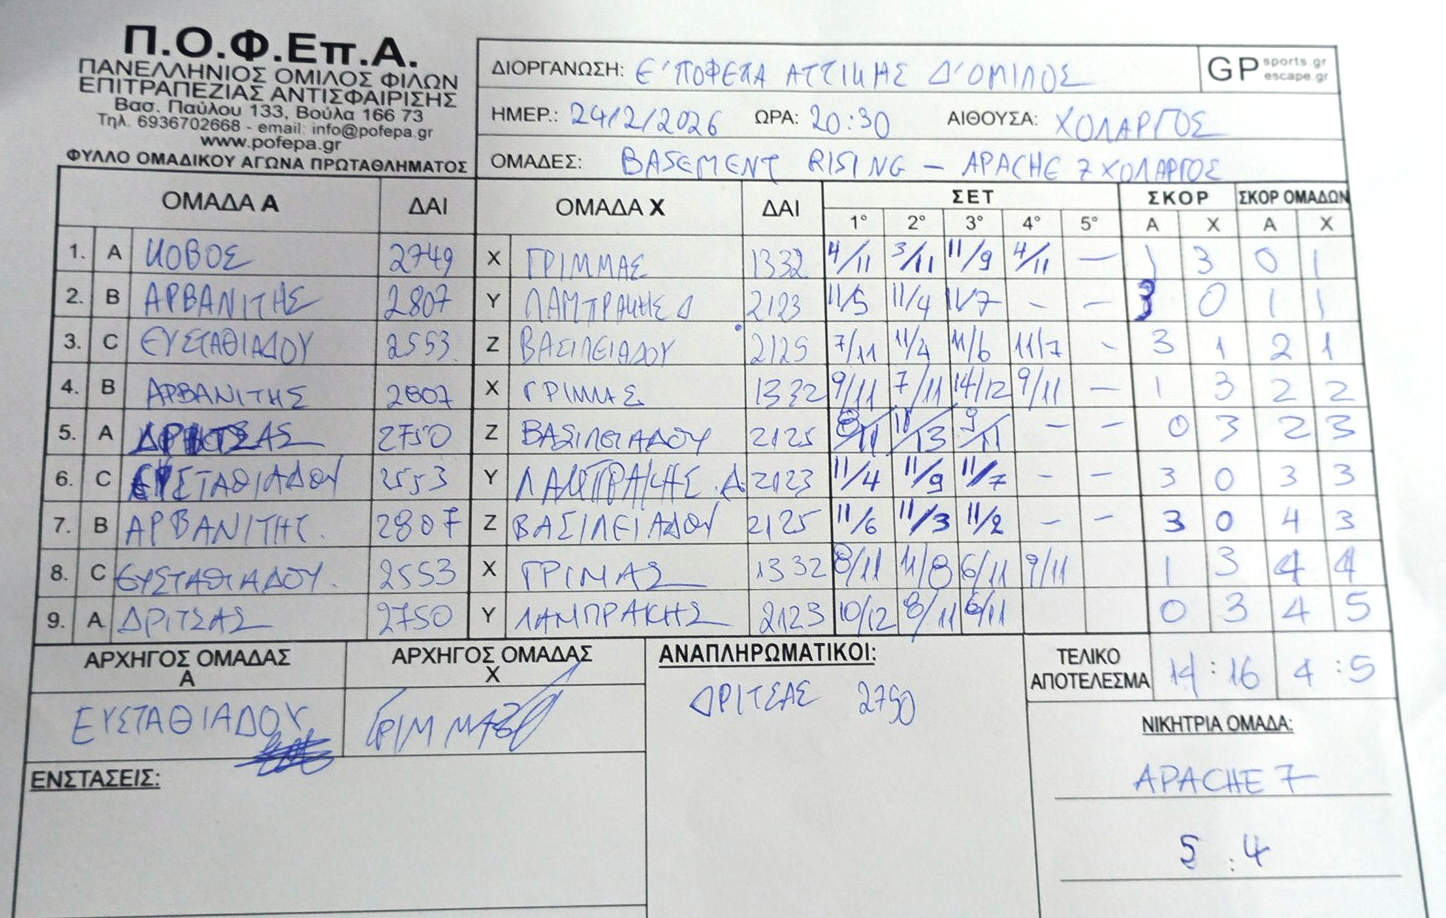 Π.Ο.Φ.Επ.Α.
ΠΑΝΕΛΛΗΝΙΟΣ ΟΜΙΛΟΣ ΦΙΛΩΝ
ΕΠΙΤΡΑΠΕΖΙΑΣ ΑΝΤΙΣΦΑΙΡΙΣΗΣ
Βασ. Παύλου 133, Βούλα 166 73
Τηλ. 6936702668 - email: info@pofepa.gr
www.pofepa.gr
ΦΥΛΛΟ ΟΜΑΔΙΚΟΥ ΑΓΩΝΑ ΠΡΩΤΑΘΛΗΜΑΤΟΣ
ΔΙΟΡΓΑΝΩΣΗ: Ε' ΠΟΦΕΠΑ ΑΤΤΙΚΗΣ Δ' ΟΜΙΛΟΣ
GP sports.gr escape.gr
ΗΜΕΡ.: 24/2/2026 ΩΡΑ: 20:30 ΑΙΘΟΥΣΑ: ΧΟΛΑΡΓΟΣ
ΟΜΑΔΕΣ: BASEMENT RISING – APACHE 7 ΧΟΛΑΡΓΟΣ
ΟΜΑΔΑ Α ΔΑΙ ΟΜΑΔΑ Χ ΔΑΙ ΣΕΤ ΣΚΟΡ ΣΚΟΡ ΟΜΑΔΩΝ
1° 2° 3° 4° 5° Α Χ Α Χ
1. A ΚΟΒΟΣ 2749 X ΓΡΙΜΜΑΣ 1332 4/11 3/11 11/9 4/11 — 1 3 0 1
2. B ΑΡΒΑΝΙΤΗΣ 2807 Y ΛΑΜΠΡΑΚΗΣ Δ 2123 11/5 11/4 11/7 - - 3 0 1 1
3. C ΕΥΣΤΑΘΙΑΔΟΥ 2553 Z ΒΑΣΙΛΕΙΑΔΟΥ 2125 7/11 11/4 11/6 11/7 - 3 1 2 1
4. B ΑΡΒΑΝΙΤΗΣ 2807 X ΓΡΙΜΜΑΣ 1332 9/11 7/11 14/12 9/11 — 1 3 2 2
5. A ΔΡΙΤΣΑΣ 2750 Z ΒΑΣΙΛΕΙΑΔΟΥ 2125 8/11 11/13 9/11 - - 0 3 2 3
6. C ΕΥΣΤΑΘΙΑΔΟΥ 2553 Y ΛΑΜΠΡΑΚΗΣ Δ 2123 11/4 11/9 11/7 - - 3 0 3 3
7. B ΑΡΒΑΝΙΤΗΣ 2807 Z ΒΑΣΙΛΕΙΑΔΟΥ 2125 11/6 11/3 11/2 - - 3 0 4 3
8. C ΕΥΣΤΑΘΙΑΔΟΥ 2553 X ΓΡΙΜΑΣ 1332 8/11 11/8 6/11 9/11 1 3 4 4
9. A ΔΡΙΤΣΑΣ 2750 Y ΛΑΜΠΡΑΚΗΣ 2123 10/12 8/11 6/11 0 3 4 5
ΑΡΧΗΓΟΣ ΟΜΑΔΑΣ Α ΑΡΧΗΓΟΣ ΟΜΑΔΑΣ Χ ΑΝΑΠΛΗΡΩΜΑΤΙΚΟΙ: ΤΕΛΙΚΟ ΑΠΟΤΕΛΕΣΜΑ 14 : 16 4 : 5
ΕΥΣΤΑΘΙΑΔΟΥ ΓΡΙΜΜΑΣ ΔΡΙΤΣΑΣ 2750
ΝΙΚΗΤΡΙΑ ΟΜΑΔΑ:
APACHE 7
5 : 4
ΕΝΣΤΑΣΕΙΣ: